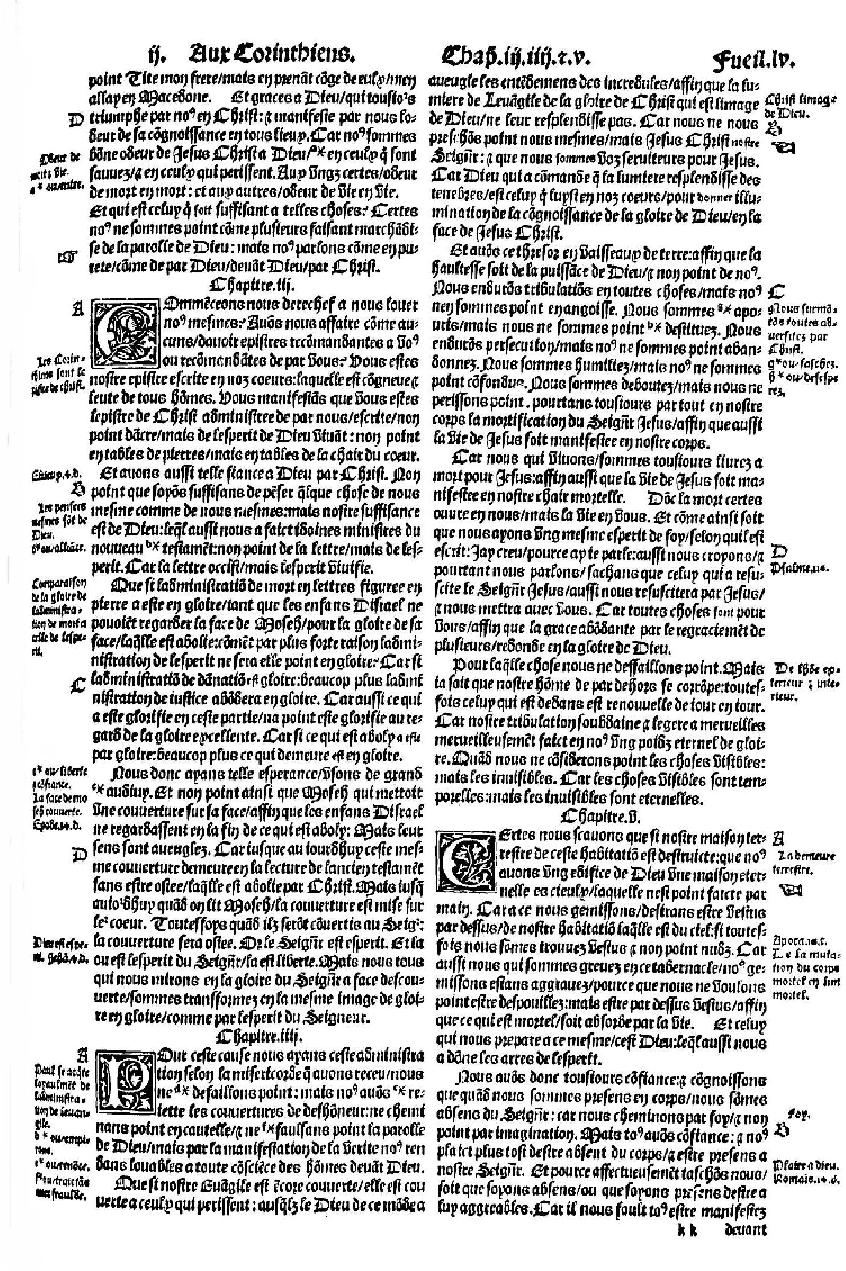 ij. Aux Corinthiens.
Chap. iij. iiij. ⁊. v.
Fueil. lv.
point Tite mon frere/mais en prenãt cõge de eulx/men
allay en Macedone. Et graces a Dieu/qui tousio's
D
triumphe par noꝰ en Christ: ⁊ manifeste par nous lo-
deur de sa cõgnoissance en tous lieux. Car noꝰ sommes
bõne odeur de Jesus Christ a Dieu/ en ceulx q̃ sont
sauuez/⁊ en ceulx qui perissent. Aux vngz certes/odeur
de mort en mort: et aux autres/odeur de vie en vie.
Et qui est celuy q̃ soit suffisant a telles choses? Certes
noꝰ ne sommes point cõme plusieurs faisant marchãdi-
se de la parolle de Dieu: mais noꝰ parlons cõme en pu-
rete/cõme de par Dieu/deuãt Dieu/par Christ.
Chapitre. iij.
A
COmmẽceons nous derechef a nous louer
noꝰ mesmes? Auõs nous affaire cõme au-
cuns/dauoir epistres recõmandantes a voꝰ
ou recõmandãtes de par vous? Vous estes
nostre epistre escrite en noz coeurs: laquelle est cõgneue ⁊
leute de tous hõmes. Vous manifestãs que vous estes
lepistre de Christ administree de par nous/escrite/non
point dãcre/mais de lesperit de Dieu viuãt: non point
en tables de pierres/mais en tables de la chair du coeur.
Et auons aussi telle fiance a Dieu par Christ. Non
B
point que soyõs suffisans de pẽser q̃lque chose de nous
mesme comme de nous mesmes: mais nostre suffisance
est de Dieu: leq̃l aussi nous a faict idoines ministres du
nouueau testamẽt: non point de la lettre/mais de les-
perit. Car la lettre occist/mais lesperit viuifie.
Que si ladministratiõ de mort en lettres figuree en
pierre a este en gloire/tant que les enfans Disrael ne
pouoiẽt regarder la face de Moseh/pour la gloire de sa
face/laq̃lle est abolie: cõmẽt par plus forte raison ladmi-
nistration de lesperit ne sera elle point en gloire? Car si
C
ladministratiõ de dãnatiõ est gloire: beaucop plus ladmi
nistration de iustice abõdera en gloire. Car aussi ce qui
a este glorifie en ceste partie/na point este glorifie au re-
gard de la gloire excellente. Car si ce qui est aboly a est
par gloire: beaucop plus ce qui demeure est en gloire.
Nous donc ayans telle esperance/vsons de grand
audluy. Et non point ainsi que Moseh qui mettoit
vne couuerture sur sa face/affin que les enfans Disrael
ne regardassent en la fin de ce qui est aboly: Mais leur
D
sens sont aueuglez. Car iusque au iourdhuy ceste mes-
me couuerture demeure en la lecture de lancien testamẽt
sans estre ostee/laq̃lle est abolie par Christ. Mais iusq̃
auio'dhuy quãd on lit Moseh/la couuerture est mise sur
le' coeur. Toutesfoys quãd ilz serõt cõuertis au Seig̃r:
la couuerture sera ostee. Or le Seig̃r est esperit. Et la
ou est lesperit du Seig̃r/la est liberte. Mais nous tous
qui nous mirons en la gloire du Seig̃r a face descou-
uerte/sommes transformez en la mesme image de gloi-
re en gloire/comme par lesperit du Seigneur.
Chapitre. iiij.
A
POur ceste cause nous ayans ceste administra
tion selon la misericorde q̃ auons receu/nous
ne defaillons point: mais noꝰ auõs re-
iette les couuertures de deshõneur: ne chemi
nans point en cautelle/⁊ ne faulsans point la parolle
de Dieu/mais par la manifestation de la verite noꝰ ren
dans louables a toute cõsciẽce des hõmes deuãt Dieu.
Que si nostre Euãgile est ẽcore couuerte/elle est cou
uerte a ceulx qui perissent: ausq̃lz le Dieu de ce mõde a
Odeur de
mort/vie
Les Corin-
thiens sont le
pistre de christ.
Les pensees
mesmes sõt de
Dieu.
ou alliãce.
Comparaison
de la gloire de
ladministra-
tion de mort a
celle de lespe-
rit.
ou liberte
⁊ fiance.
La face de mo
seh couuerte.
Exode. 34. d.
aueugle les entẽdemens des incredules/affin que la lu-
miere de Leuãgile de la gloire de Christ qui est limage
de Dieu/ne leur resplendisse pas. Car nous ne nous
preschõs point nous mesmes/mais Jesus Christ nostre
Seig̃r: ⁊ que nous sommes voz seruiteurs pour Jesus.
Car Dieu qui a cõmande q̃ la lumiere resplendisse des
tenebres/est celuy q̃ luyst en noz coeurs/pour donner illu-
mination de la cõgnoissance de la gloire de Dieu/en la
face de Jesus Christ.
Et auõs ce thresor en vaisseaux de terre: affin que la
haultesse soit de la puissãce de Dieu/⁊ non point de noꝰ.
Nous endurõs tribulatiõs en toutes choses/mais noꝰ
nen sommes point en angoisse. Nous sommes apo-
uris/mais nous ne sommes point destituez. Nous
endurõs persecution/mais noꝰ ne sommes point aban-
donnez. Nous sommes humiliez/mais noꝰ ne sommes
point cõfondus. Nous sommes deboutez/mais nous ne
perissons point. portans tousiours par tout en nostre
corps la mortification du Seig̃r Jesus/affin que aussi
la vie de Jesus soit manifestee en nostre corps.
Car nous qui viuons/sommes tousiours liurez a
mort pour Jesus: affin aussi que la vie de Jesus soit ma-
nifestee en nostre chair mortelle. Dõc la mort certes
ouure en nous/mais la vie en vous. Et cõme ainsi soit
que nous ayons vng mesme esperit de foy/selon quil est
escrit: Jay creu/pource ay ie parle: aussi nous croyons/⁊
pourtant nous parlons/sachans que celuy qui a resu-
scite le Seig̃r Jesus/aussi nous resuscitera par Jesus/
⁊ nous mettra auec vous. Car toutes choses sont pour
vous/affin que la grace abõdante par le regraciemẽt de
plusieurs/redonde en la gloire de Dieu.
Pour laq̃lle chose nous ne deffaillons point. Mais
ia soit que nostre hõme de par dehors se corrõpe: toutes-
fois celuy qui est dedans est renouuelle de iour en iour.
Car nostre tribulation soubdaine ⁊ legere a merueilles
merueilleusemẽt faict en noꝰ vng poidz eternel de gloi-
re. Quãd nous ne cõsiderons point les choses visibles:
mais les inuisibles. Car les choses visibles sont tem-
porelles: mais les inuisibles sont eternelles.
Chapitre. v.
CErtes nous scauons que si nostre maison ter-
restre de ceste habitatiõ est destruicte: que noꝰ
auons vng edifice de Dieu vne maison eter-
nelle es cieulx/laquelle nest point faicte par
main. Car a ce nous gemissons/desirans estre vestus
par dessus/de nostre habitatiõ laq̃lle est du ciel: si toutes-
fois nous sõmes trouuez vestus ⁊ non point nudz. Car
aussi nous qui sommes greuez en ce tabernacle/noꝰ ge-
missons estans aggrauez/pource que nous ne voulons
point estre despouillez: mais estre par dessus vestus/affin
que ce qui est mortel/soit absorbe par la vie. Et celuy
qui nous prepare a ce mesme/cest Dieu: leq̃l aussi nous
a dõne les arres de lesperit.
Nous auõs donc tousiours cõfiance: ⁊ cõgnoissons
que quãd nous sommes presens en corps/nous sõmes
absens du Seig̃r: car nous cheminons par foy/⁊ non
point par imagination. Mais toꝰ auõs cõfiance: ⁊ noꝰ
plaict plus tost destre absent du corps/⁊ estre presens a
nostre Seig̃r. Et pource affectueusemẽt taschõs nous/
soit que soyons absens/ou que soyons presens destre a
luy aggreables. Car il nous fault toꝰ estre manifestez
kk deuant
Christ limage
de Dieu.
B
C
Nous surmõ-
tõs toutes ad-
uersitez par
Christ.
D
De lhõe ex-
terieur ⁊ inte-
rieur.
A
La demeure
terrestre.
De la muta-
tion du corps
mortel en im̃
mortel.
Foy.
B
Plaire a dieu.
Romais. 14. d.